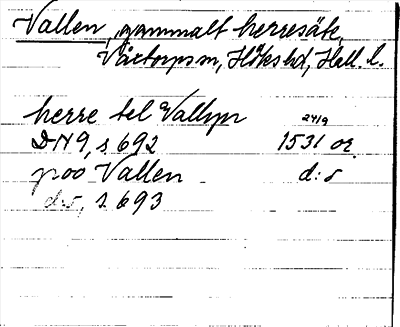 Vallen, gammalt herresäte,
Våxtorps sn, Höks hd, Hall. l.
herre tel Vallyn 24/9
DN 9, s 692 1531 or.
poo Vallen d:o
d:o, s 693